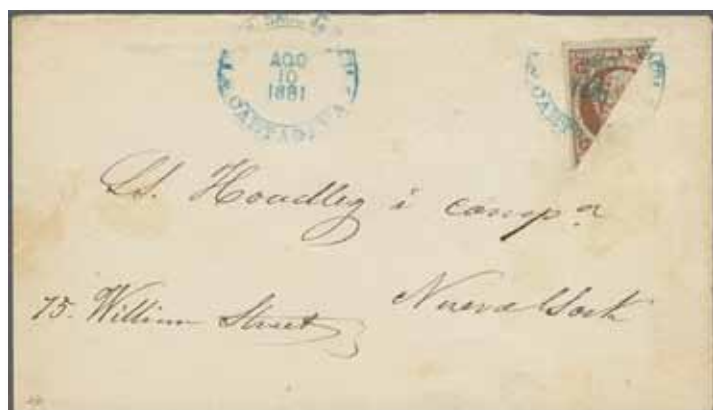 AGO
10
1881
CARTAGENA
Hoadley i compª
75. William Street
Nueva York